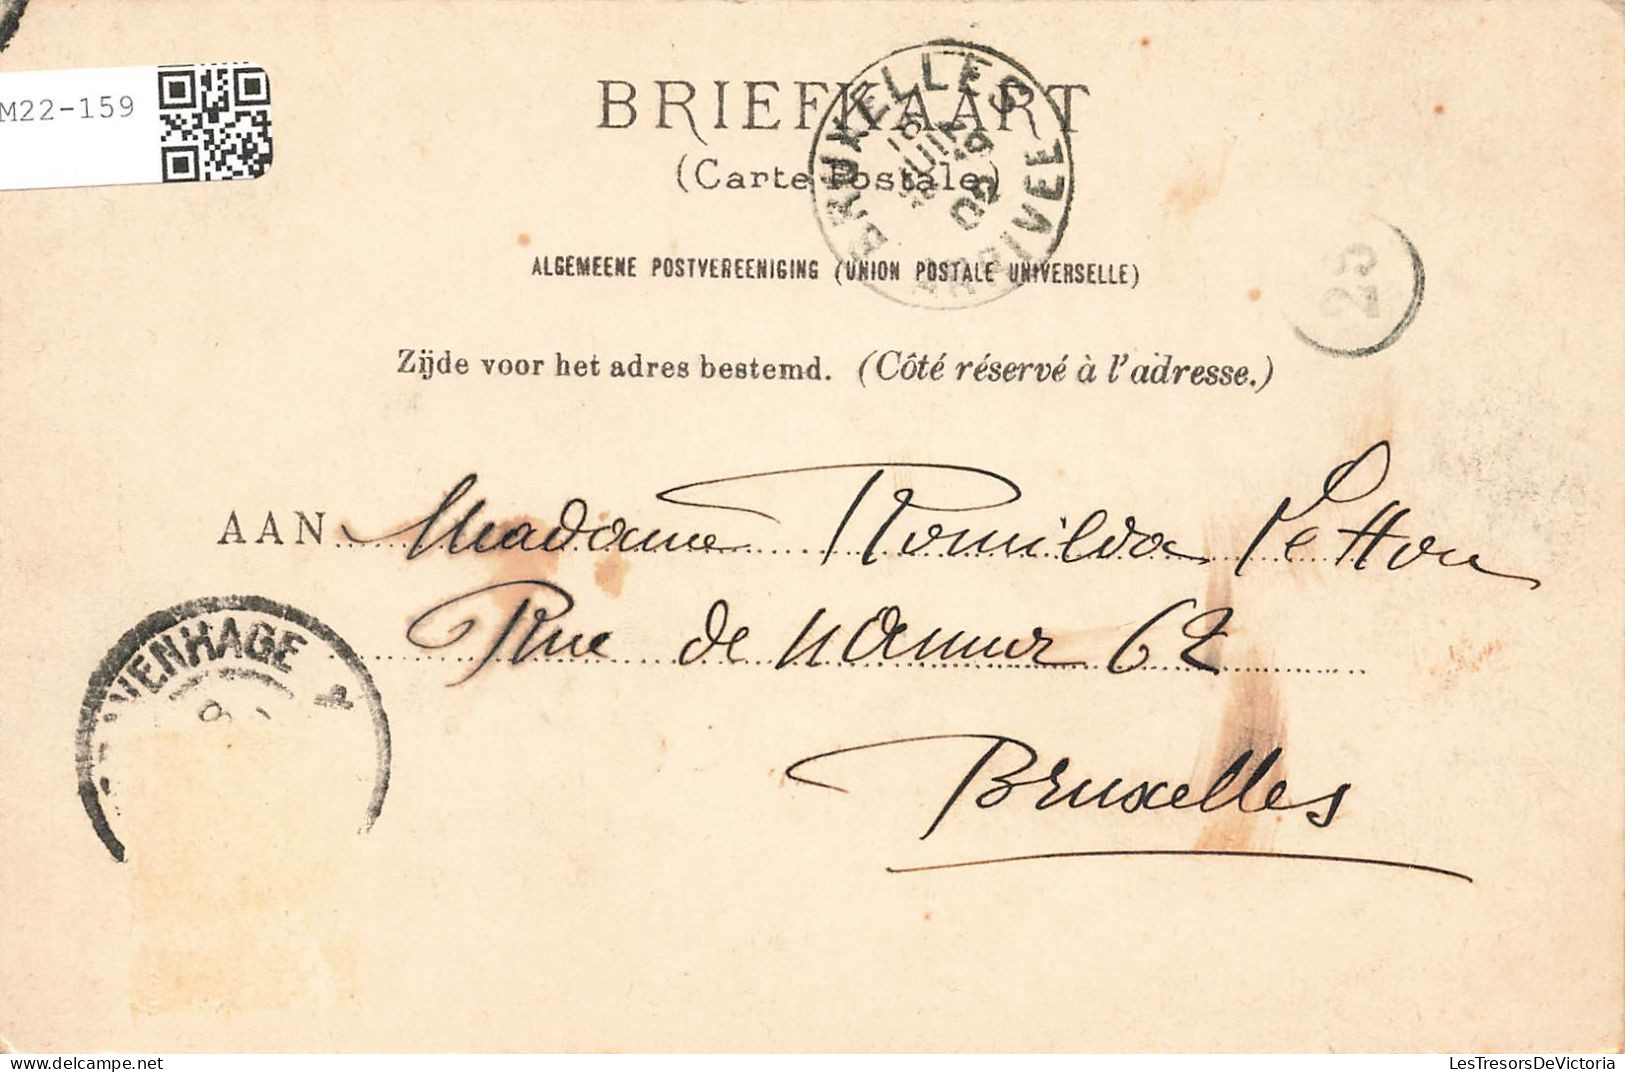 M22-159
BRIEFKAART
(Carte Postale)
BRUXELLES
ARRIVEE
ALGEMEENE POSTVEREENIGING (UNION POSTALE UNIVERSELLE)
25
Zijde voor het adres bestemd. (Côté réservé à l'adresse.)
AAN Madame Romilda
Rue de Namur 62
VENHAGE
Bruxelles
delcampe.net
LesTresorsDeVictoria